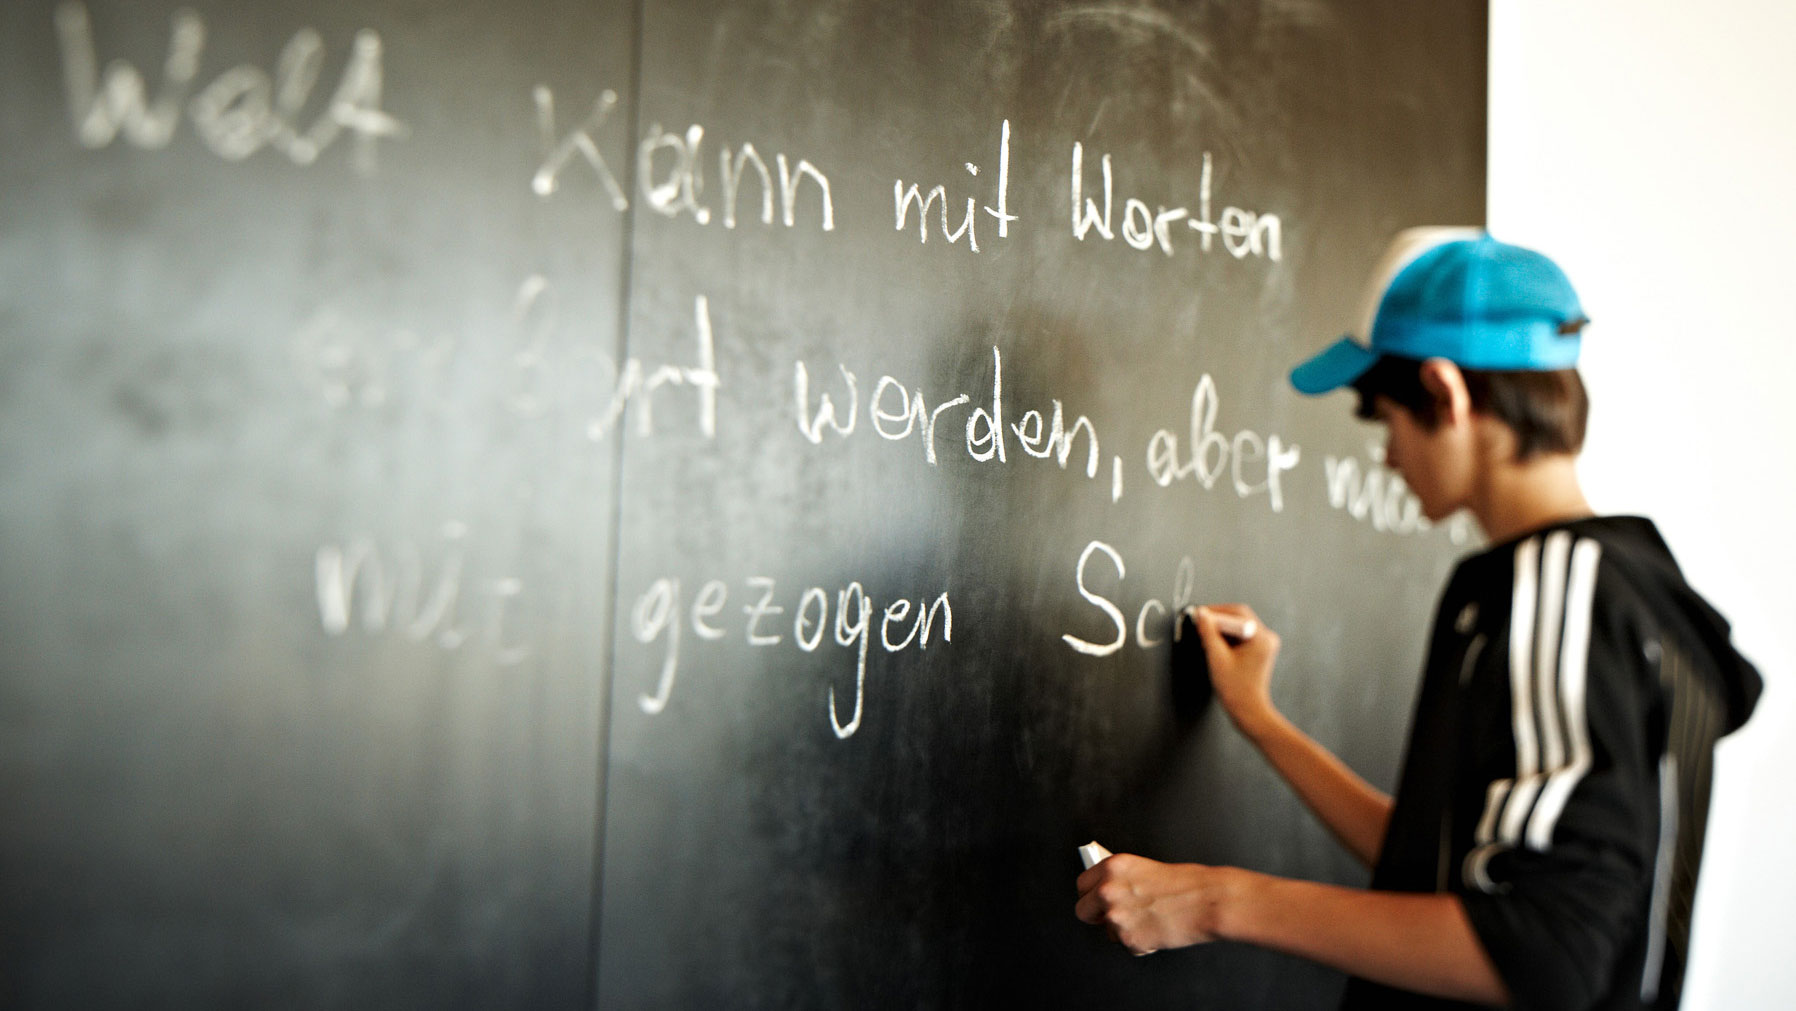 Welt kann mit Worten
werden, aber
mit gezogen Sch